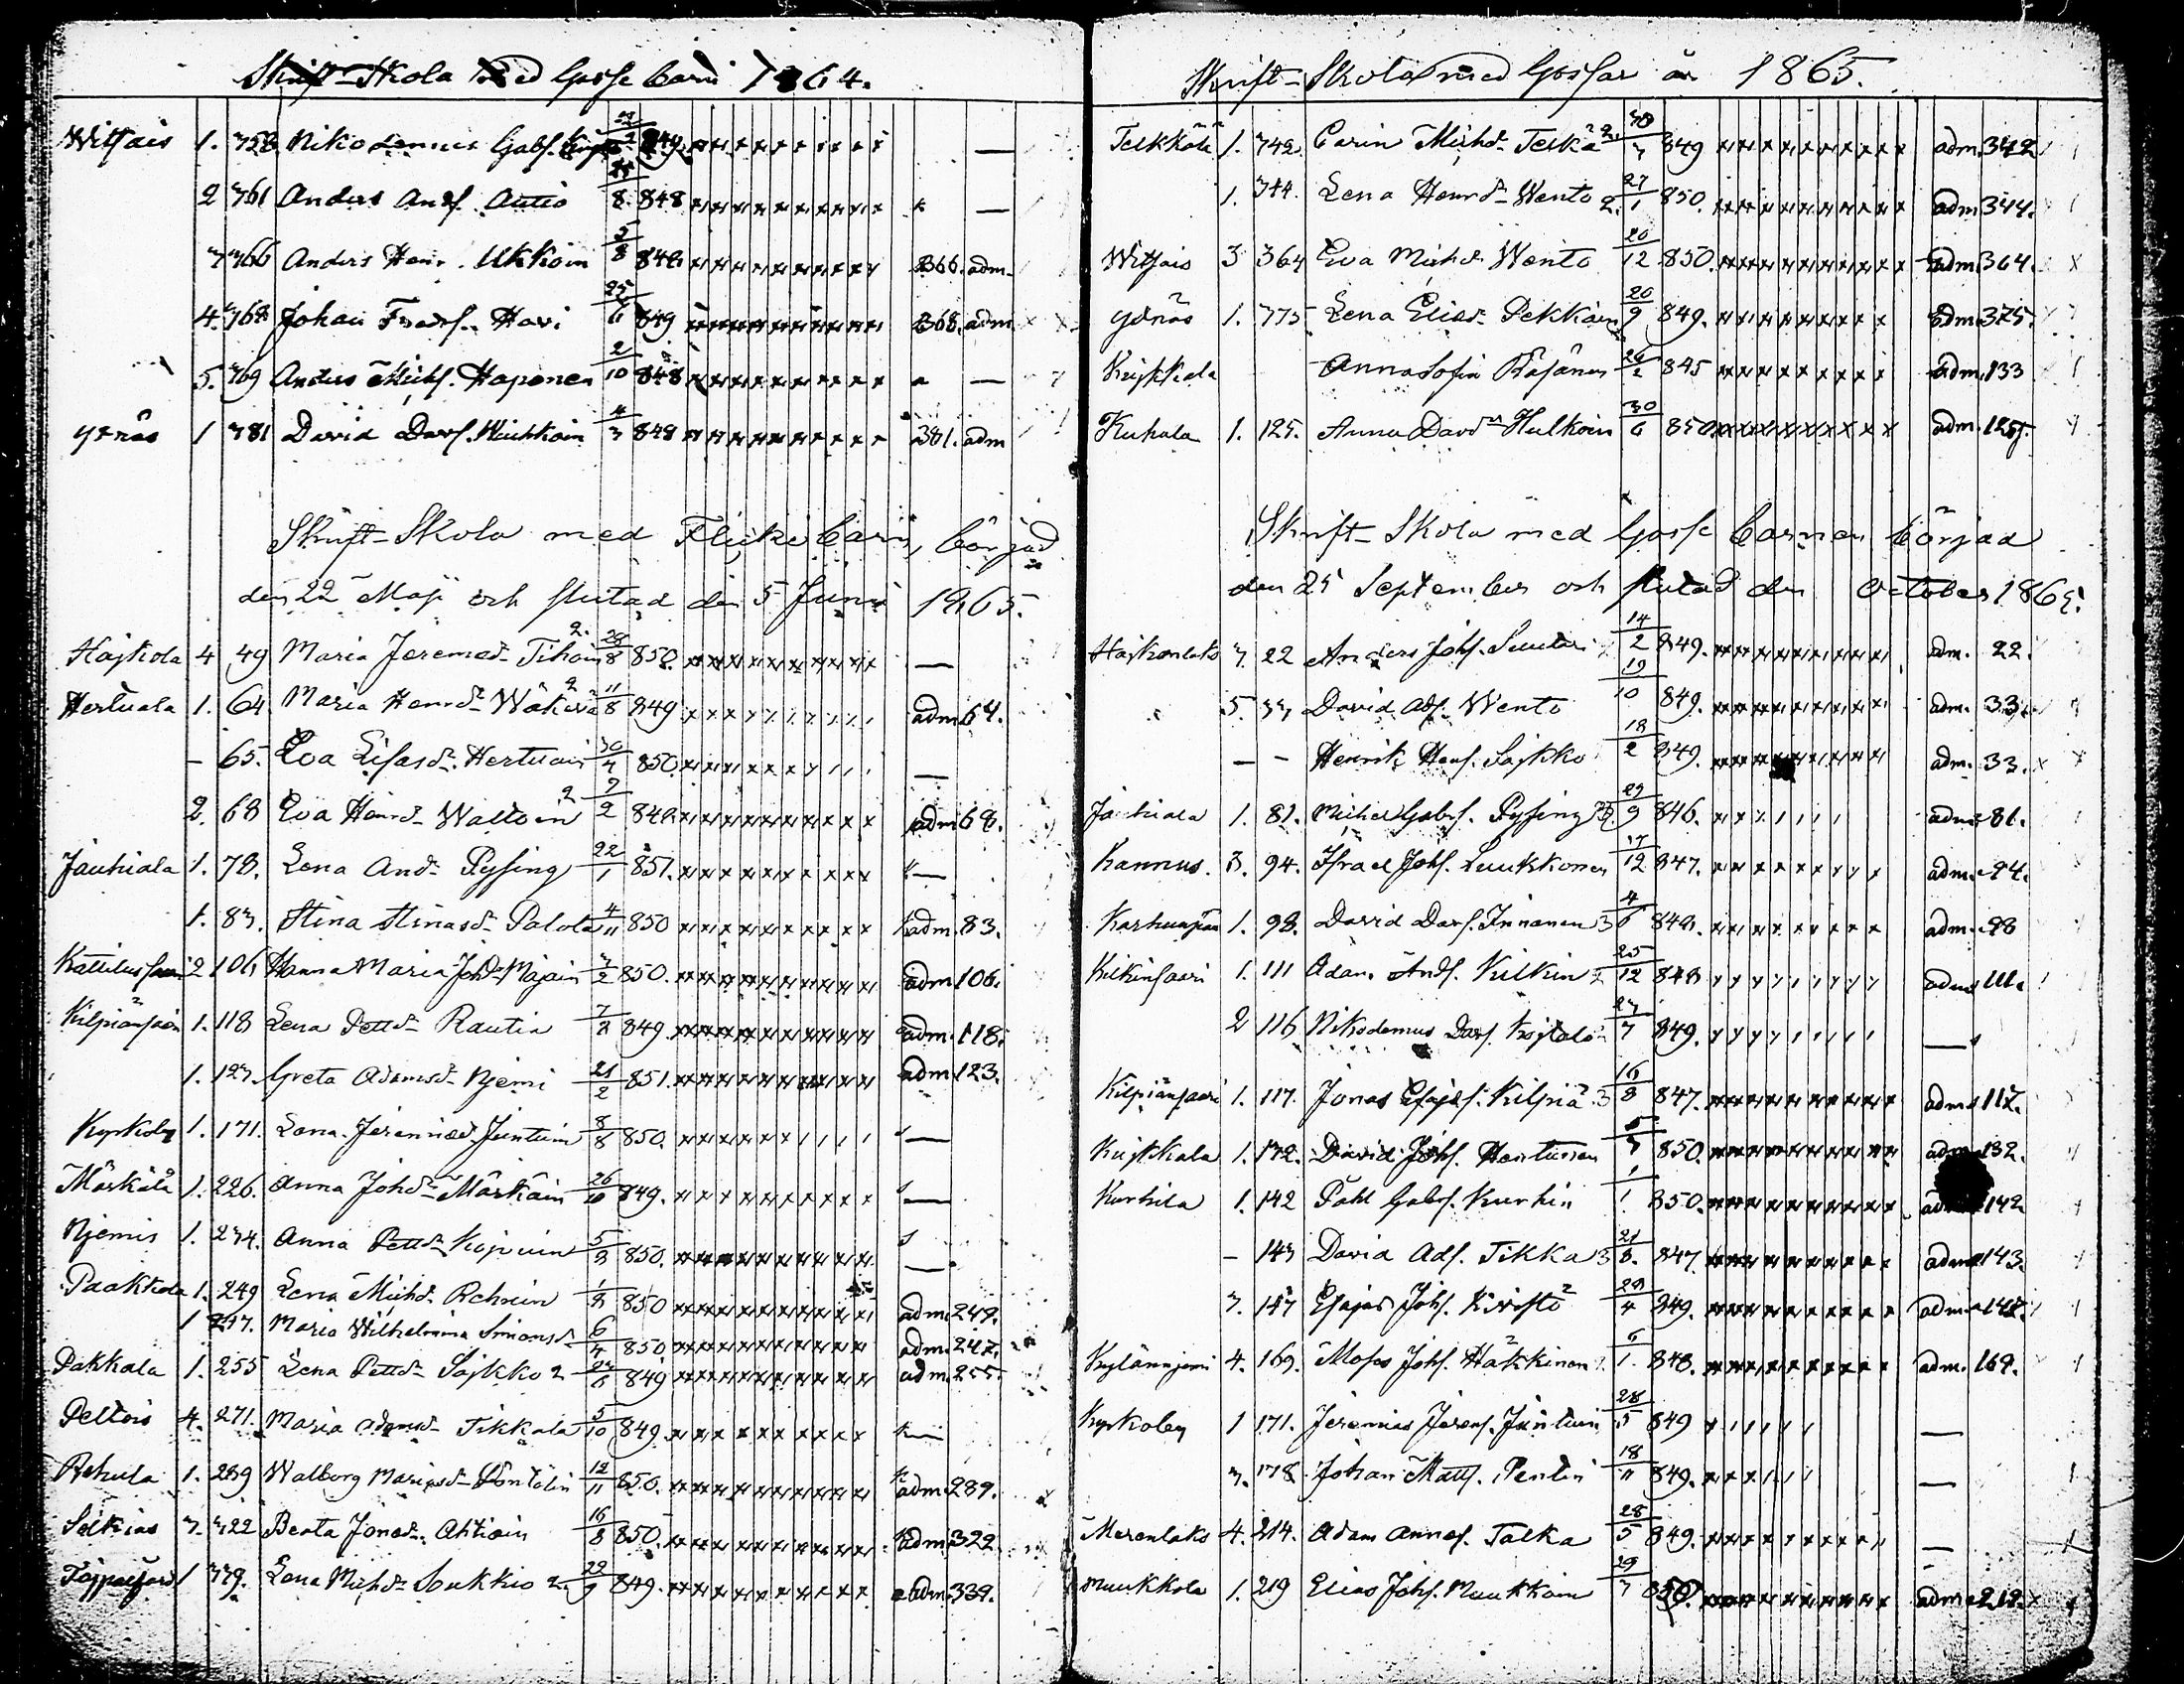 Skrift-Skola med Gosse barn 1864.
Witsais 1. 358. Nikodemus Gabs. 849
2 361 Anders Ands. Autio 8 848 —
3 366 Anders Henr. Ukkoin 5/8 848 366. adm.
4. 368 Johan Fredrs. Havi 25/6 849 368. adm
5. 369 Anders Michs. Haponen 2/10 848 —
Ydnäs 1 381 David Davs. Wiichkoin 4/3 848 381. adm
Skrift-Skola med Flicke barn, börjad
den 22 Maji och slutad den 5 Junii 1865.
Hajkola 4 49 Maria Jeremiæd. Tihoin 28/8 850 —
Hertuala 1. 64 Maria Henrsdr Wäkevä 11/8 849 adm 64.
– 65. Eva Eliasdr. Hertuain 30/4 850. —
2. 68 Eva Henrd. Waltoin 2 848 adm 68.
Jauhiala 1. 78. Lena Andr Pysing 22/1 851. —
1. 83. Stina Stinasdr Palola 4/11 850 adm. 83.
Kattilus saari 2 106 Hanna Maria Johdr Majain 3/2 850. adm 106.
Kilpiänsaari 1. 118 Lena Pettdr Rautia 7/2 849. adm. 118.
1. 123. Greta Adamsdr Njemi 21/2 851. adm 123.
Kyrkoby 1. 171. Lena Jeremiæd. Juntuin 8/8 850. —
Märkälä 1. 226. Anna Johdr Märkäin 26/10 849. —
Njemis 1. 234. Anna Pettdr Kojvuin 5/3 850. —
Paakkola 1. 249 Lena Michdr Rehnin 850 adm. 249.
1 247. Maria Wilhelmina Simonsdr 6/4 850 adm. 247.
Pakkala 1. 255 Lena Pettdr Sojkko 2 849 adm. 255.
Peltois 4. 271. Maria Adamsd. Tikkala 5/10 849. —
Rehula 1. 289 Walborg Mariasdr Pöntölin 12/11 850. adm. 289.
Selkias 3. 322 Beata Jonasdr. Ahtiain 16/8 850. adm. 322
1 339. Lena Michdr Soukkio 2. 22/9 849. adm. 339.
Skrift-Skola med Gossar år 1865.
Telkkälä 1. 342 Carin Michdr Telkä 30/3 849 adm. 342
1. 344. Lena Henrdr Wento 2. 27/1 850. adm 344.
Witsais 3 364 Eva Michdr Wento 20/12 850. adm. 364.
Ydnäs 1. 375 Lena Eliædr Pekkain 20/9 849. adm. 375.
Kujkkala Anna Sofia Räsänen 26/2 845 adm. 133
Kuhala 1. 125. Anna Davdr Hulkoin 30/6 850 adm. 125.
Skrift-Skola med Gosse barnen börjad
den 25 September och slutad den October 1865.
Hajkonlaks 3. 22 Anders Johs. Suutari 14/2 849. adm. 22.
5. 33 David Ads. Wento 19/10 849. adm. 33.
– – Henrik Hens. Sojkko 18/2 849. adm. 33.
Jauhiala 1. 81. Michel Gabrs. Pysing 29/9 846. adm. 81.
Kannus. 3. 94. Israel Johs. Luukkonen 17/12 847. adm. 94.
Karhunpää 1. 98. David Davs. Innanen 3 4/6 848. adm. 98
Kilkinsaari 1. 111 Adam Ands. Kilkin 2 25/12 848 adm. 111.
2 116 Nikodemus Davs. 27/7 849. —
Kilpiänsaari 1. 117. Jonas Esajæs. Kilpiä. 3 16/8 847. adm. 117.
Kujkkala 1. 132. David Johs. Hentunen 850. adm. 132.
Kurhila 1. 142 Påhl Gabrs. Kurhin 1/1 850. adm. 142.
– 143 David Ads. Tikka 3 21/8. 847 adm. 143.
3. 147 Esajas Johs. Kivistö 29/4 849. adm. 147
Kylänniemi 4. 169. Moses Johs. Häkkinen 6/1. 848. adm. 169.
Kyrkoby 1 171. Jeremias Jerems. Juntuin 28/5 849 —
3. 178 Johan Matts. Pentin 18/11 849. —
Merenlaks 4. 214. Adam Annæs. Talka 28/5 849. —
Muukkola 1. 219 Elias Johs. Muukkoin 29/7 850. adm. 219.